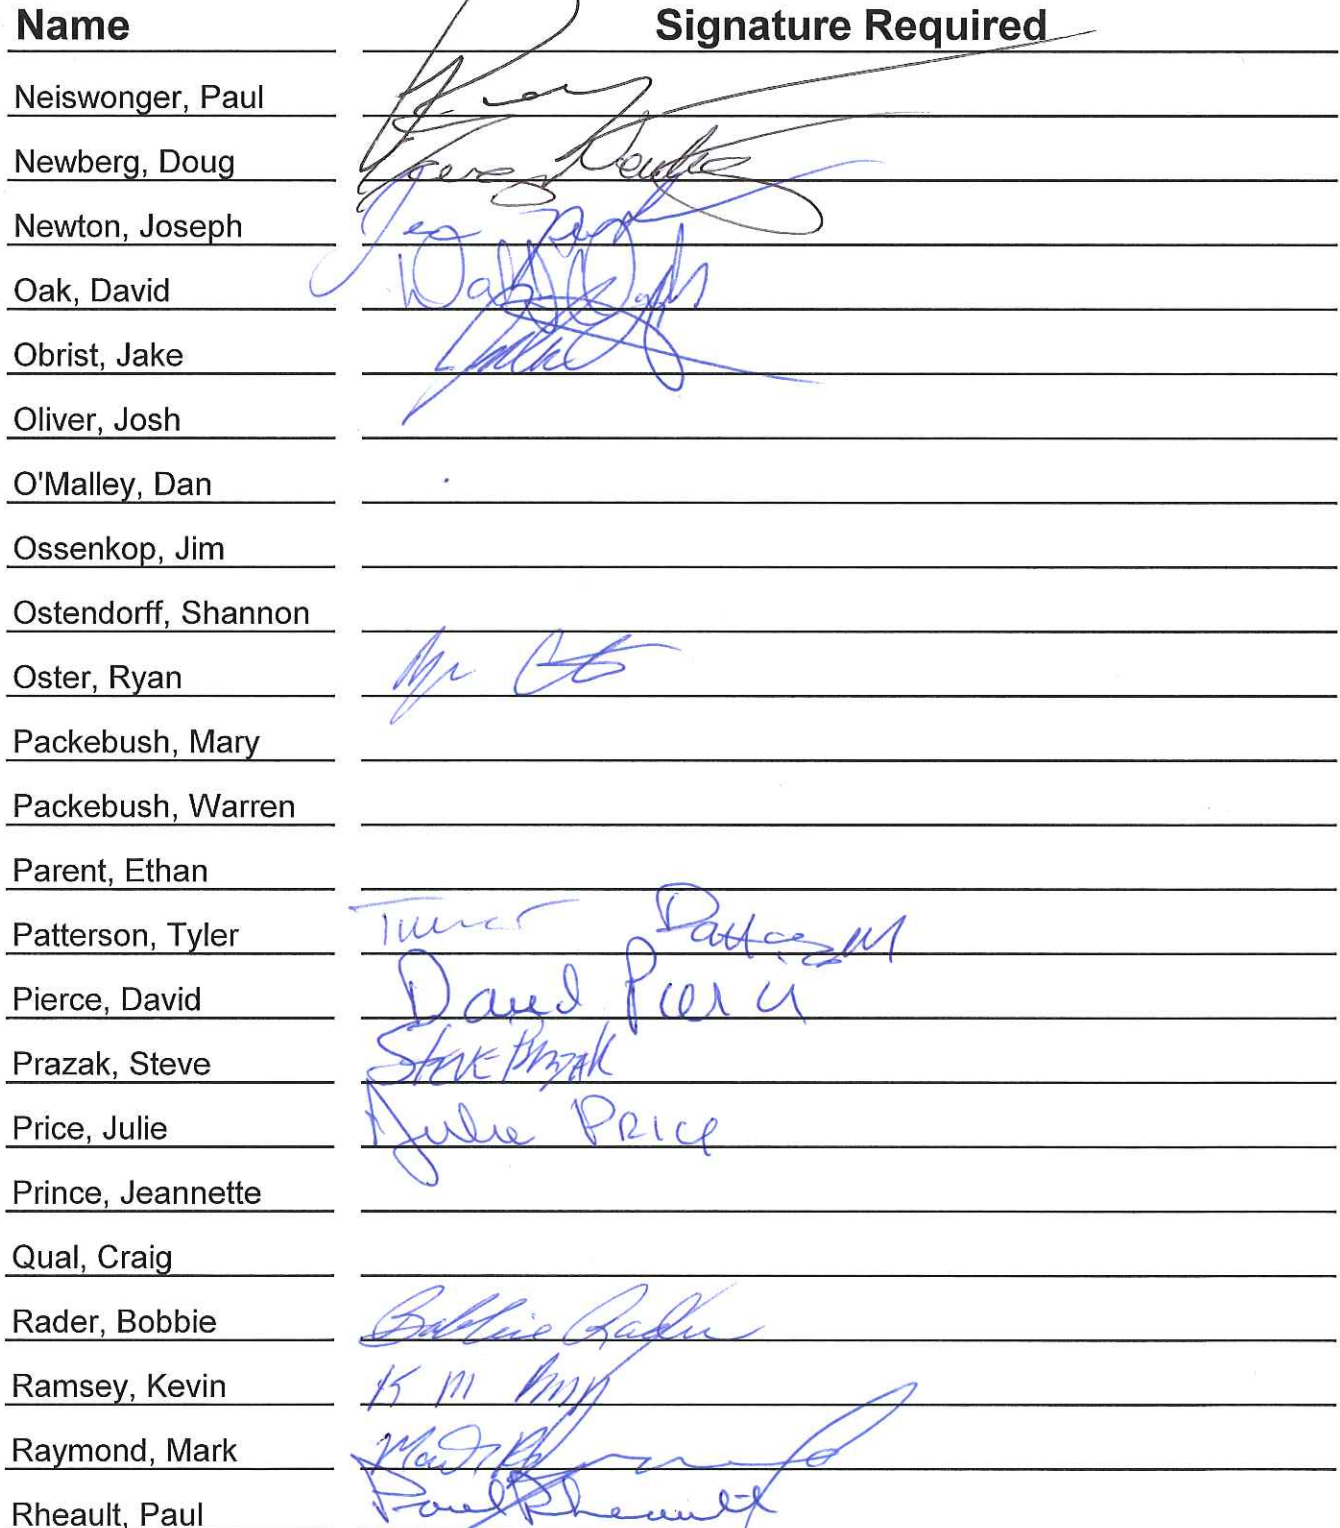 Name Signature Required
Neiswonger, Paul
Newberg, Doug
Newton, Joseph
Oak, David
Obrist, Jake
Oliver, Josh
O'Malley, Dan
Ossenkop, Jim
Ostendorff, Shannon
Oster, Ryan
Packebush, Mary
Packebush, Warren
Parent, Ethan
Patterson, Tyler
Pierce, David David Pierce
Prazak, Steve Steve Prazak
Price, Julie Julie Price
Prince, Jeannette
Qual, Craig
Rader, Bobbie Bobbie Rader
Ramsey, Kevin
Raymond, Mark
Rheault, Paul Paul Rheault